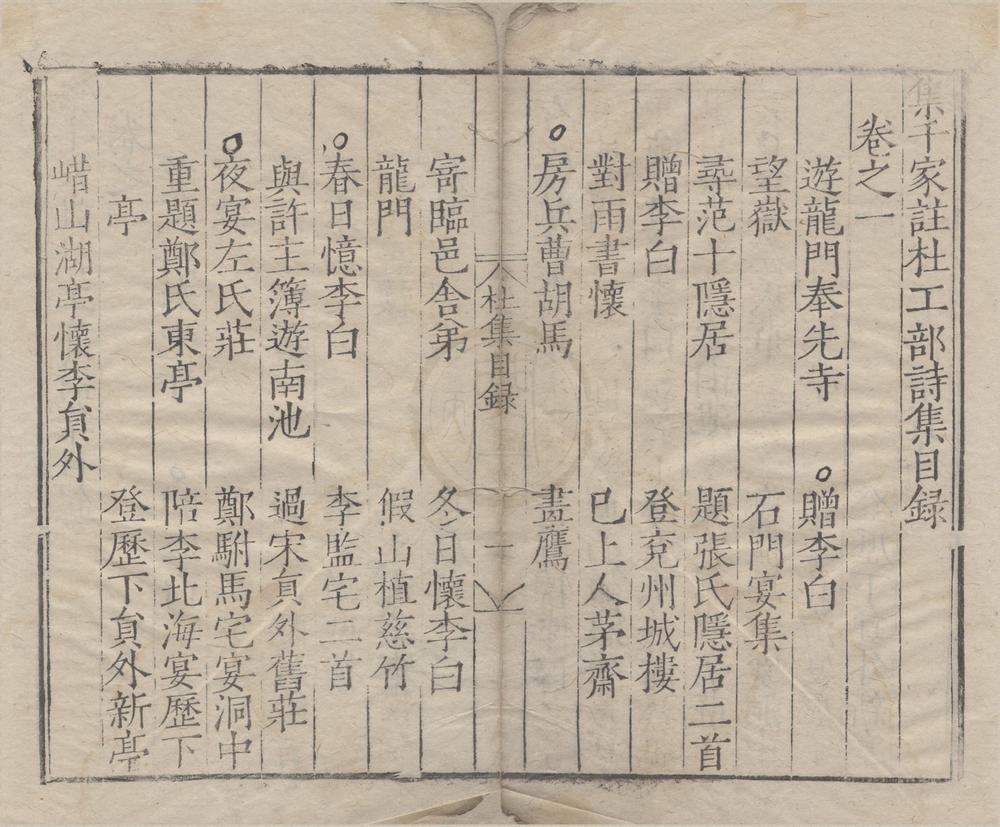 集千家註杜工部詩集目録
卷之一
遊龍門奉先寺 贈李白
望嶽 石門宴集
尋范十隱居 題張氏隱居二首
贈李白 登兖州城樓
對雨書懷 巳上人茅齋
房兵曹胡馬 畫鷹
杜集目録 一
寄臨邑舍弟 冬日懷李白
龍門 假山植慈竹
春日憶李白 李監宅二首
與許主簿遊南池 過宋貟外舊莊
夜宴左氏莊 鄭駙馬宅宴洞中
重題鄭氏東亭 陪李北海宴歷下
亭 登歷下貟外新亭
㟙山湖亭懷李貟外